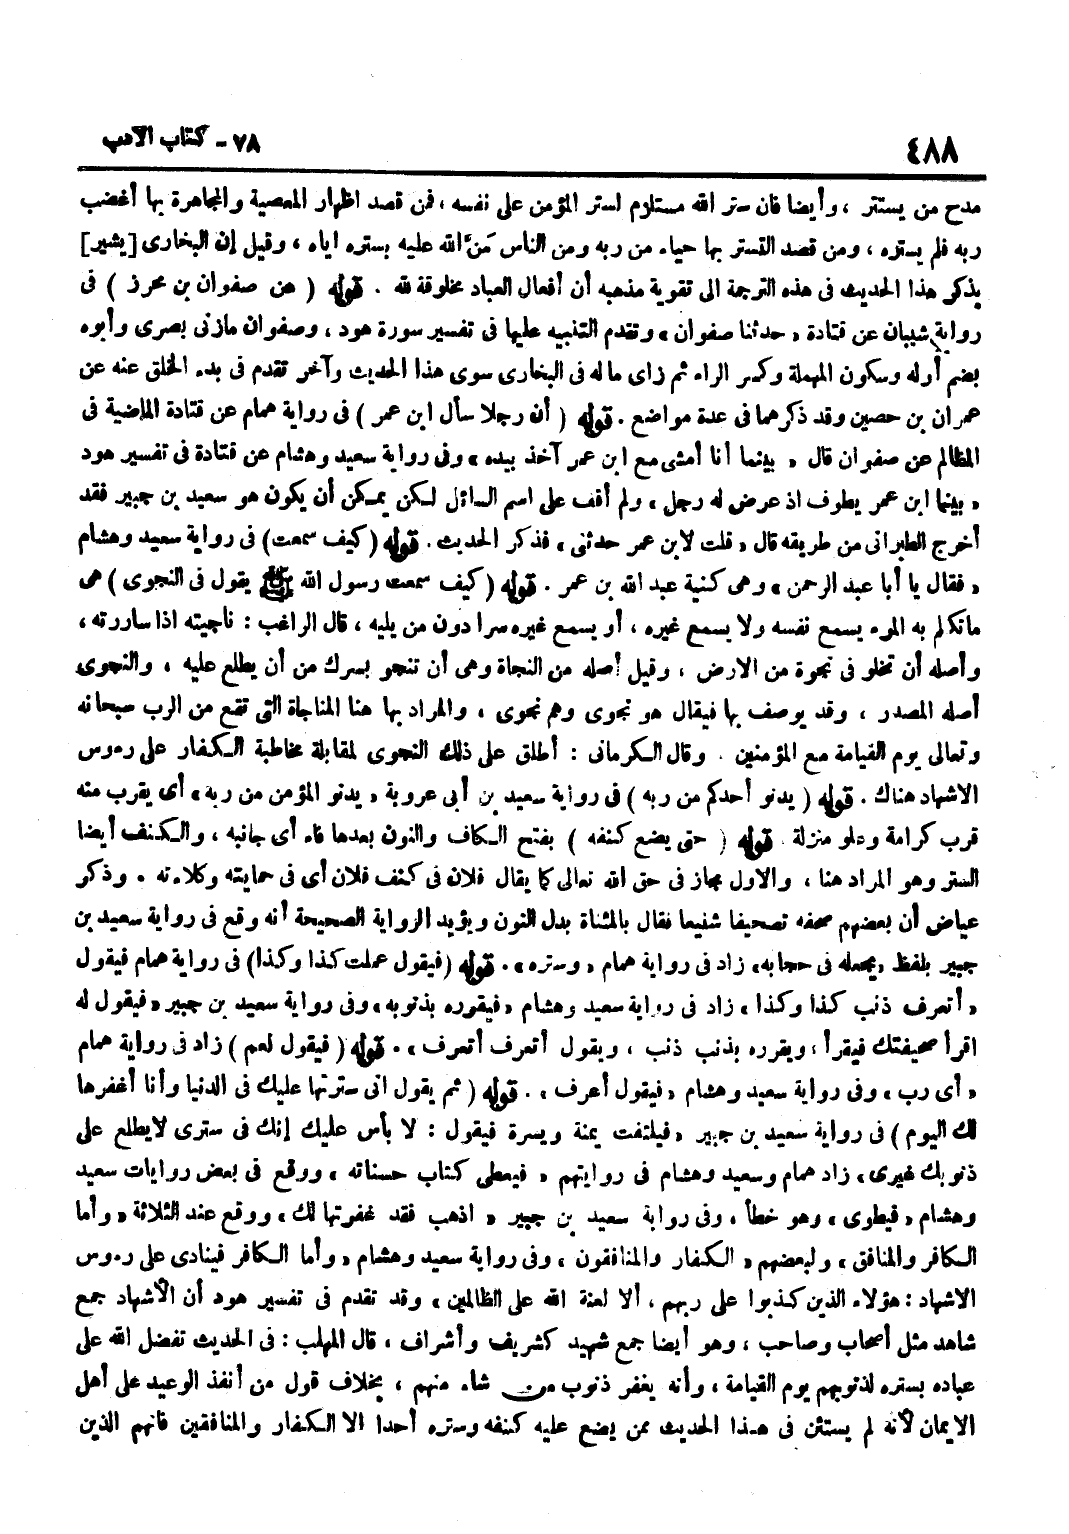 ٤٨٨
٧٨ - كتاب الأدب
مدح من يستتر ، وأيضا فان ستر الله مستلزم لستر المؤمن على نفسه ، فمن قصد اظهار المعصية والمجاهرة بها أغضب
ربه فلم يستره ، ومن قصد التستر بها حياء من ربه ومن الناس مَنَّ الله عليه بستره اياه ، وقيل إن البخارى [يشير]
بذكر هذا الحديث فى هذه الترجمة الى تقوية مذهبه أن أفعال العباد مخلوقة لله . قوله ( عن صفوان بن محرز ) فى
رواية شيبان عن قتادة « حدثنا صفوان » وتقدم التنبيه عليها فى تفسير سورة هود ، وصفوان مازنى بصرى وأبوه
بضم أوله وسكون المهملة وكسر الراء ثم زاى ماله فى البخارى سوى هذا الحديث وآخر تقدم فى بدء الخلق عنه عن
عمران بن حصين وقد ذكرهما فى عدة مواضع . قوله ( أن رجلا سأل ابن عمر ) فى رواية همام عن قتادة الماضية فى
المظالم عن صفوان قال « بينما أنا أمشى مع ابن عمر آخذ بيده » وفى رواية سعيد وهشام عن قتادة فى تفسير هود
« بينما ابن عمر يطوف اذ عرض له رجل ، ولم أقف على اسم السائل لكن يمكن أن يكون هو سعيد بن جبير فقد
أخرج الطبرانى من طريقه قال « قلت لابن عمر حدثنى ، فذكر الحديث . قوله ( كيف سمعت ) فى رواية سعيد وهشام
« فقال يا أبا عبد الرحمن » وهى كنية عبد الله بن عمر . قوله ( كيف سمعت رسول الله ﷺ يقول فى النجوى ) هى
ماتكلم به المرء يسمع نفسه ولا يسمع غيره ، أو يسمع غيره سرا دون من يليه ، قال الراغب : ناجيته اذا ساررته ،
وأصله أن تخلو فى نجوة من الارض ، وقيل أصله من النجاة وهى أن تنجو بسرك من أن يطلع عليه ، والنجوى
أصله المصدر ، وقد يوصف بها فيقال هو نجوى وهم نجوى ، والمراد بها هنا المناجاة التى تقع من الرب سبحانه
وتعالى يوم القيامة مع المؤمنين . وقال الكرمانى : أطلق على ذلك النجوى لمقابلة مخاطبة الكفار على رءوس
الاشهاد هناك . قوله ( يدنو أحدكم من ربه ) فى رواية سعيد بن أبى عروبة « يدنو المؤمن من ربه » أى يقرب منه
قرب كرامة وعلو منزلة . قوله ( حتى يضع كنفه ) بفتح الكاف والنون بعدها فاء أى جانبه ، والكنف أيضا
الستر وهو المراد هنا ، والاول مجاز فى حق الله تعالى كما يقال فلان فى كنف فلان أى فى حمايته وكلاءته . وذكر
عياض أن بعضهم صحفه تصحيفا شنيعا فقال بالمثناة بدل النون ويؤيد الرواية الصحيحة أنه وقع فى رواية سعيد بن
جبير بلفظ «يجعله فى حجابه» زاد فى رواية همام « وستره » . قوله (فيقول عملت كذا وكذا) فى رواية همام فيقول
« أتعرف ذنب كذا وكذا ، زاد فى رواية سعيد وهشام « فيقرره بذنوبه » وفى رواية سعيد بن جبير « فيقول له
اقرأ صحيفتك فيقرأ ، ويقرره بذنب ذنب ، ويقول أتعرف أتعرف » . قوله ( فيقول نعم ) زاد فى رواية همام
« أى رب » وفى رواية سعيد وهشام « فيقول أعرف » . قوله ( ثم يقول انى سترتها عليك فى الدنيا وأنا أغفرها
لك اليوم ) فى رواية سعيد بن جبير « فيلتفت يمنة ويسرة فيقول : لا بأس عليك إنك فى سترى لايطلع على
ذنوبك غيرى ، زاد همام وسعيد وهشام فى روايتهم « فيعطى كتاب حسناته » ووقع فى بعض روايات سعيد
وهشام « فيطوى » وهو خطأ ، وفى رواية سعيد بن جبير « اذهب فقد غفرتها لك » ووقع عند الثلاثة « وأما
الكافر والمنافق » ولبعضهم « الكفار والمنافقون ، وفى رواية سعيد وهشام « وأما الكافر فينادى على رءوس
الاشهاد : هؤلاء الذين كذبوا على ربهم ، ألا لعنة الله على الظالمين » وقد تقدم فى تفسير هود أن الأشهاد جمع
شاهد مثل أصحاب وصاحب ، وهو أيضا جمع شهيد كشريف وأشراف ، قال المهلب : فى الحديث تفضل الله على
عباده بستره لذنوبهم يوم القيامة ، وأنه يغفر ذنوب من شاء منهم ، بخلاف قول من أنفذ الوعيد على أهل
الايمان لأنه لم يستثن فى هذا الحديث ممن يضع عليه كنفه وستره أحدا الا الكفار والمنافقين فانهم الذين